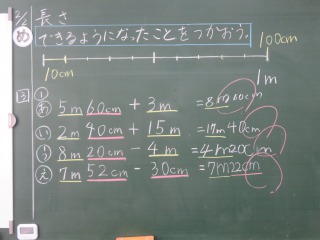 2/1 長さ
め できるようになったことをつかおう。
10cm 100cm
1m
③ ①
あ 5m60cm + 3m = 8m60cm
い 2m40cm + 15m = 17m40cm
う 8m20cm - 4m = 4m20cm
え 7m52cm - 30cm = 7m22cm